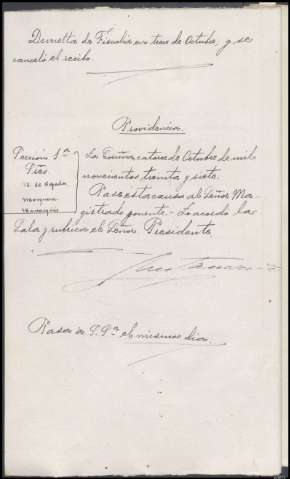 Devuelta de Fiscalía en trece de Octubre, y se
canceló el recibo.
Providencia
Sección 1ª
Sres.
La Coruña, catorce de Octubre de mil
novecientos treinta y siete.
Pase esta causa al Señor Ma-
gistrado ponente.- Lo acordó la
Sala y rubrica el Señor Presidente
Pasa a S. Sª el mismo dia.